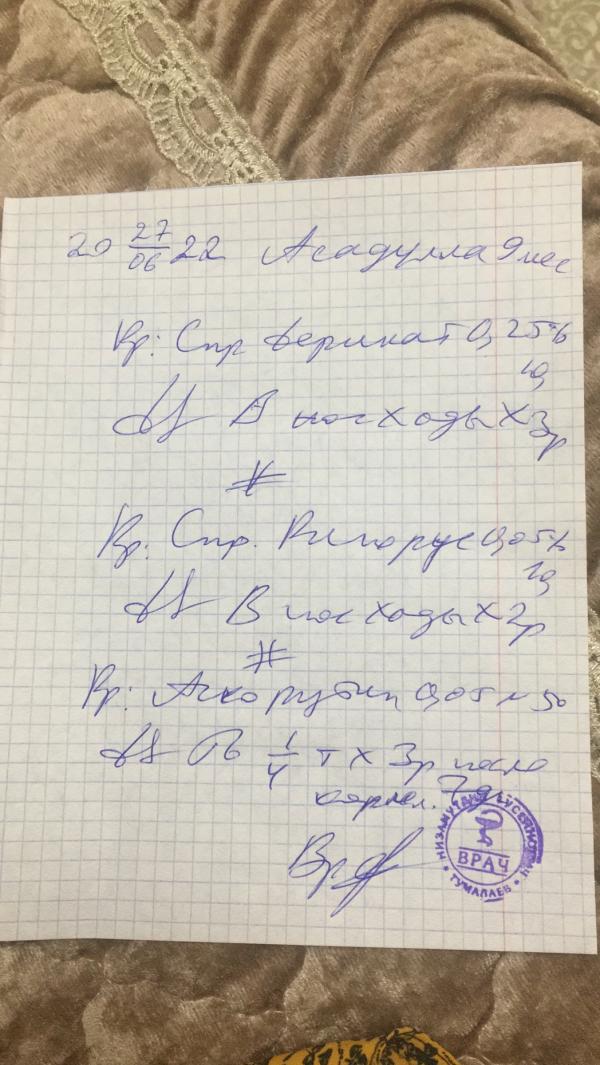 20 27/06 22 Асадулла 9 мес
Rp: Спр Деринат 0,25%
10,
DS В нос ходы х 3р
#
Rp: Спр. Ринорус 0,05%
10,
DS В нос ходы х 2р
#
Rp: Аскорутин 0,05 N 50
DS По 1/4 т х 3р после
кормл. 7 дн
Вр
НИЗАМУТДИН
ВРАЧ
ТУМАЛАЕВ